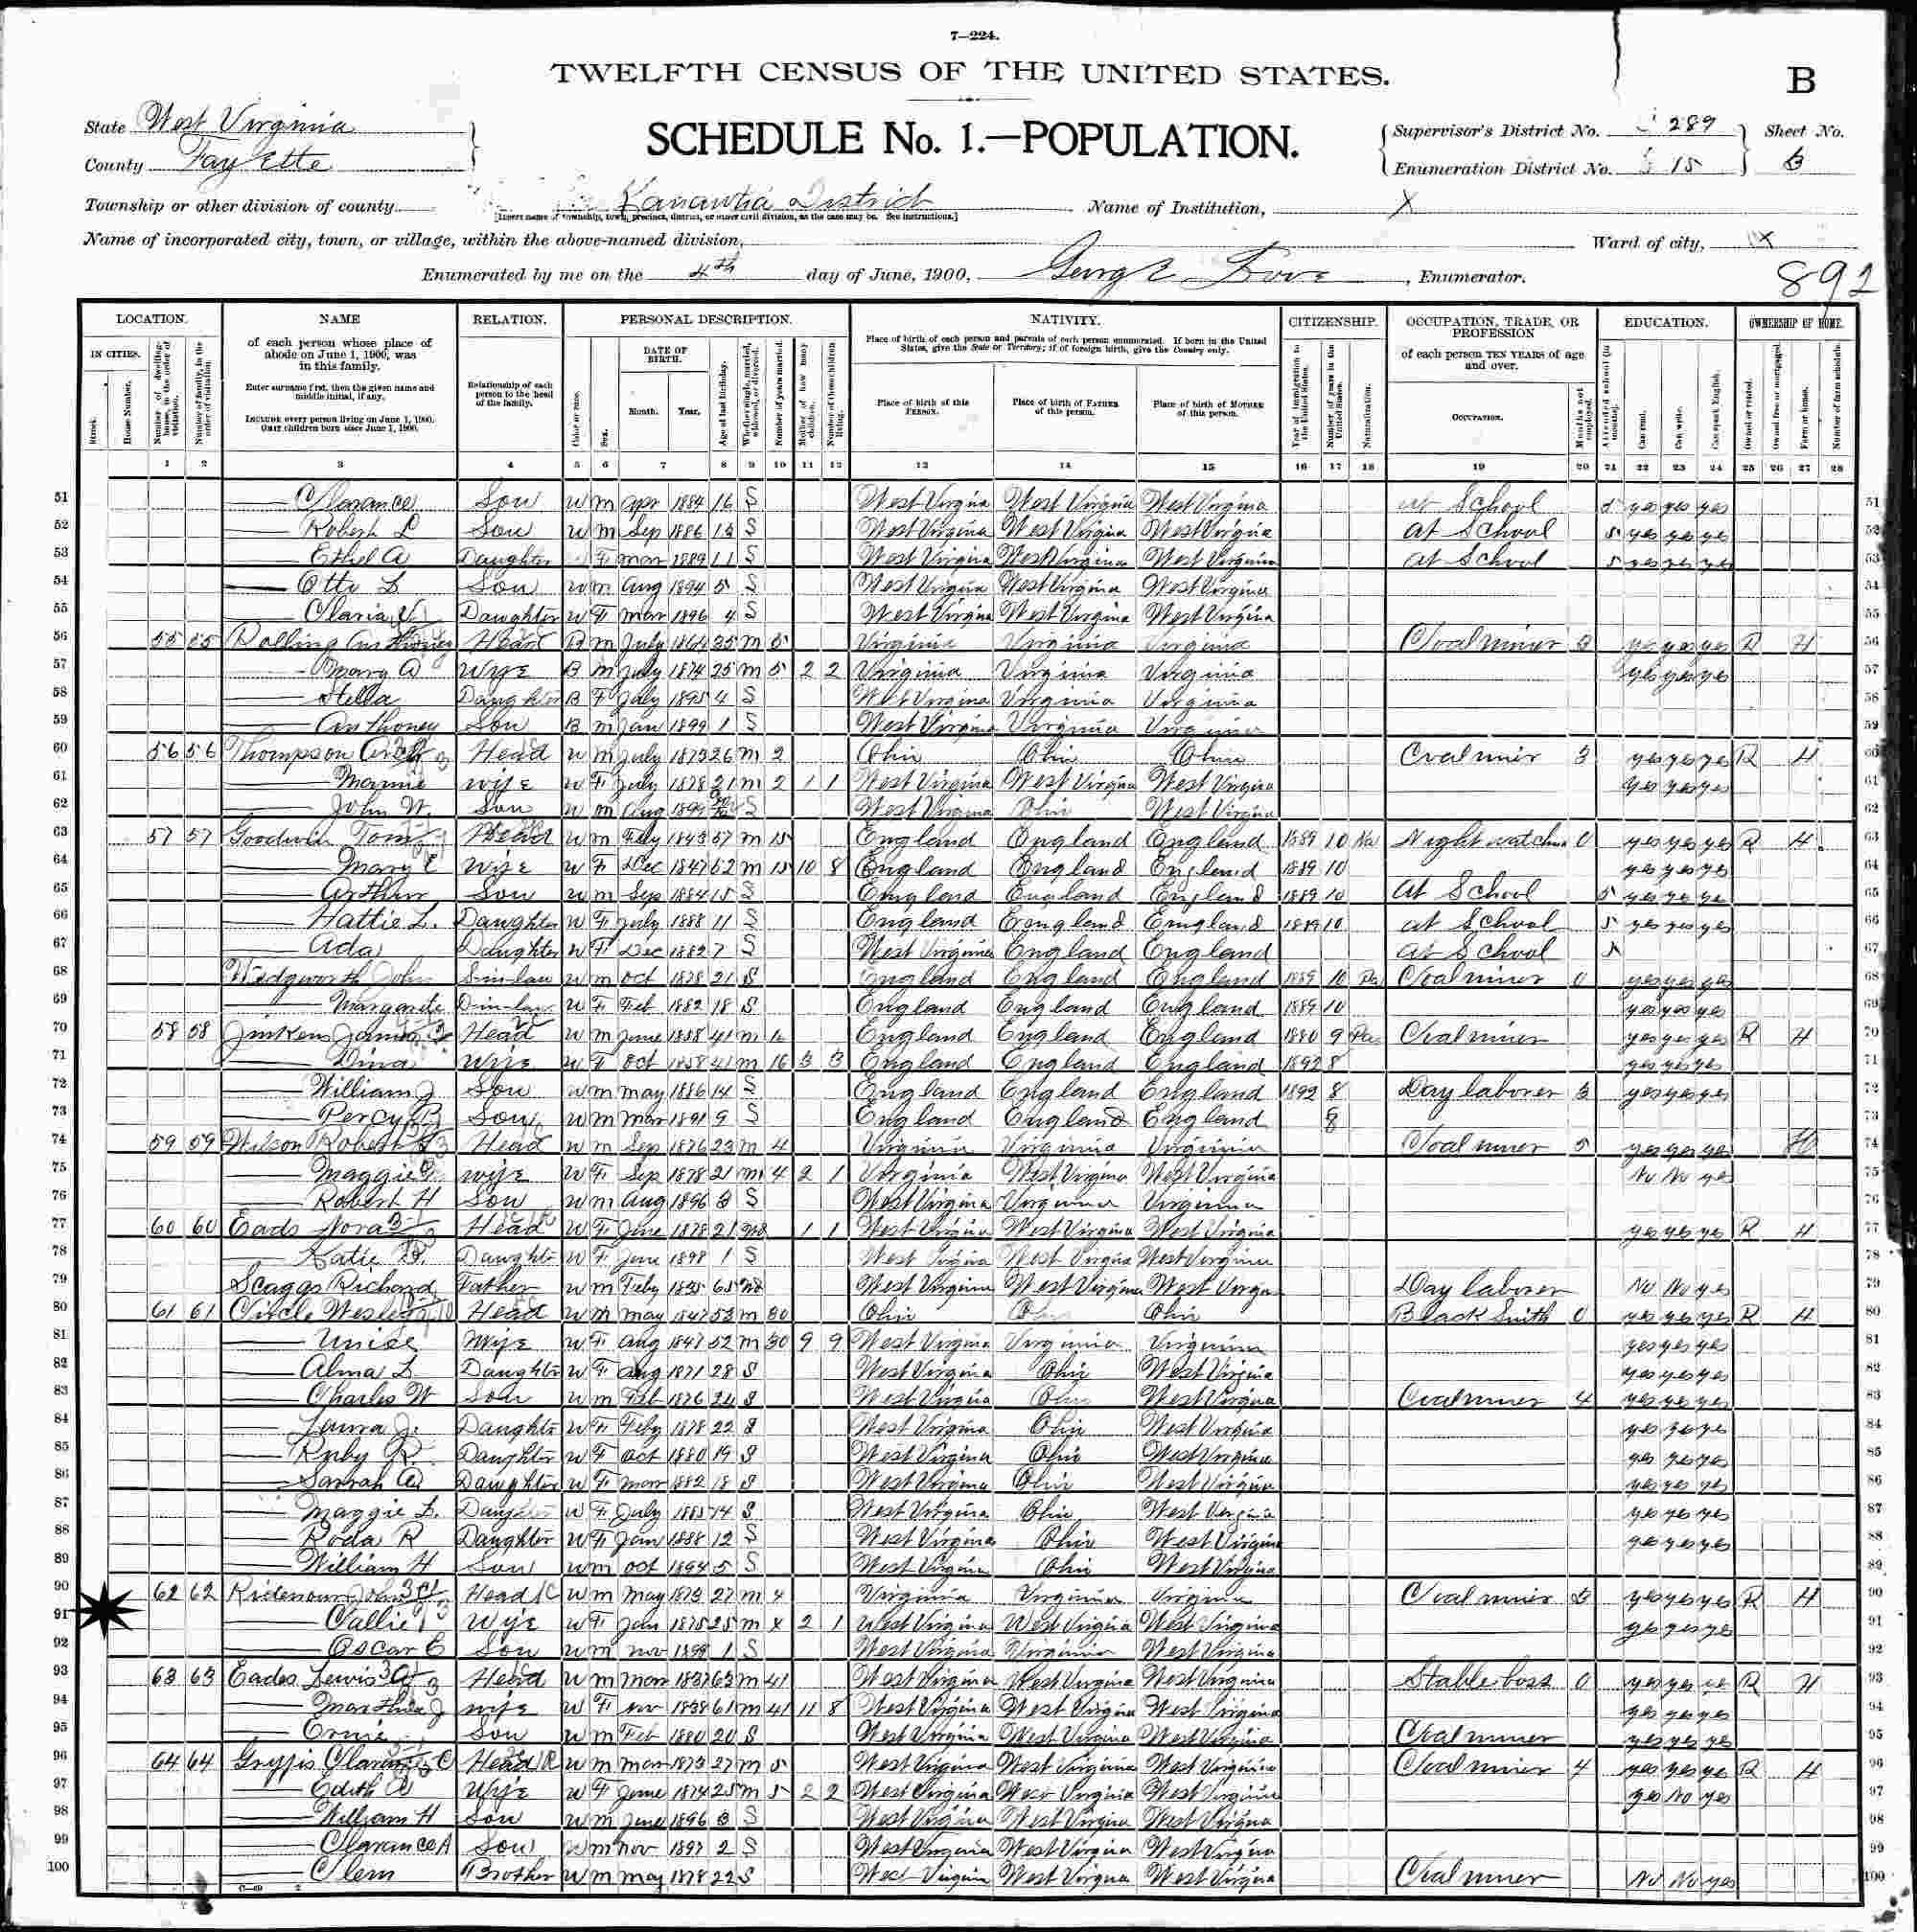 7—224.
TWELFTH CENSUS OF THE UNITED STATES.
B
State West Virginia
SCHEDULE No. 1.—POPULATION.
Supervisor's District No. 289 Sheet No.
County Fayette
Enumeration District No. 15
Township or other division of county Kanawha District Name of Institution, X
[Insert name of township, town, precinct, district, or other civil division, as the case may be. See instructions.]
Name of incorporated city, town, or village, within the above-named division, Ward of city, X
Enumerated by me on the 4th day of June, 1900, , Enumerator.
892
LOCATION. NAME RELATION. PERSONAL DESCRIPTION. NATIVITY. CITIZENSHIP. OCCUPATION, TRADE, OR PROFESSION EDUCATION. OWNERSHIP OF HOME.
IN CITIES. of each person whose place of abode on June 1, 1900, was in this family. Relationship of each person to the head of the family. DATE OF BIRTH. Place of birth of each person and parents of each person enumerated. If born in the United States, give the State or Territory; if of foreign birth, give the Country only. of each person TEN YEARS of age and over.
Enter surname first, then the given name and middle initial, if any.
INCLUDE every person living on June 1, 1900. OMIT children born since June 1, 1900.
Street. House Number. Month. Year. Place of birth of this PERSON. Place of birth of FATHER of this person. Place of birth of MOTHER of this person. OCCUPATION.
1 2 3 4 5 6 7 8 9 10 11 12 13 14 15 16 17 18 19 20 21 22 23 24 25 26 27 28
51 Clarance Son W m apr 1884 16 S West Virginia West Virginia West Virginia at School 5 yes yes yes 51
52 Robert L Son W m Sep 1886 13 S West Virginia West Virginia West Virginia at School 5 yes yes yes 52
53 Ethel A Daughter F mar 1889 11 S West Virginia West Virginia West Virginia at School 5 yes yes yes 53
54 Otto L Son W m Aug 1894 5 S West Virginia West Virginia West Virginia 54
55 Daughter W F mar 1896 4 S West Virginia West Virginia West Virginia 55
56 55 55 Head B m July 1864 35 m 5 Virginia Virginia Virginia Coal miner 3 yes yes yes R H 56
57 Mary A Wife B m July 1874 25 m 5 2 2 Virginia Virginia Virginia yes yes yes 57
58 Stella Daughter B F July 1895 4 S West Virginia Virginia Virginia 58
59 Anthoney Son B m Jan 1899 1 S West Virginia Virginia Virginia 59
60 56 56 Thompson Head W m July 1873 26 m 2 Ohio Ohio Ohio Coal miner 3 yes yes yes R H 60
61 Mamie Wife W F July 1878 21 m 2 1 1 West Virginia West Virginia West Virginia yes yes yes 61
62 John W. Son W m Aug 1899 S West Virginia Ohio West Virginia 62
63 57 57 Goodwin Tom Head W m Feby 1843 57 m 15 England England England 1889 10 Na Night watchman 0 yes yes yes R H 63
64 Mary E Wife W F Dec 1847 52 m 15 10 8 England England England 1889 10 yes yes yes 64
65 Arthur Son W m Sep 1884 15 S England England England 1889 10 At School 5 yes yes yes 65
66 Hattie L. Daughter W F July 1888 11 S England England England 1889 10 at School 5 yes yes yes 66
67 Ada Daughter W F Dec 1882 7 S West Virginia England England at School 67
68 Wedgworth John S-in-law W m oct 1878 21 S England England England 1889 10 Pa Coal miner 0 yes yes yes 68
69 Margarete D-in-law W F Feb 1882 18 S England England England 1889 10 yes yes yes 69
70 58 58 Jinkens James Head W m June 1858 41 m England England England 1880 9 Pa Coal miner yes yes yes R H 70
71 Dina Wife W F Oct 1858 41 m 16 3 3 England England England 1892 8 yes yes yes 71
72 William J Son W m may 1886 14 S England England England 1892 8 Day laborer 3 yes yes yes 72
73 Percy B Son W m mar 1891 9 S England England England 8 73
74 59 59 Wilson Robert Head W m Sep 1876 23 m 4 Virginia Virginia Virginia Coal miner 5 yes yes yes H 74
75 Maggie Wife W F Sep 1878 21 m 4 2 1 Virginia West Virginia West Virginia No No yes 75
76 Robert H Son W m Aug 1896 3 S West Virginia Virginia Virginia 76
77 60 60 Eads Nora Head W F June 1878 21 Wd 1 1 West Virginia West Virginia West Virginia yes yes yes R H 77
78 Katie B. Daughter W F June 1898 1 S West Virginia West Virginia West Virginia 78
79 Scaggs Richard Father W m Feby 1835 65 Wd West Virginia West Virginia West Virginia Day laborer No No yes 79
80 61 61 Circle Wesley Head W m may 1847 53 m 30 Ohio Ohio Ohio Black Smith 0 yes yes yes R H 80
81 Unice Wife W F Aug 1847 52 m 30 9 9 West Virginia Virginia Virginia yes yes yes 81
82 Alma L Daughter W F Aug 1871 28 S West Virginia Ohio West Virginia yes yes yes 82
83 Charles W Son W m Feb 1876 24 S West Virginia Ohio West Virginia Coal miner 4 yes yes yes 83
84 Laura J. Daughter W F Feby 1878 22 S West Virginia Ohio West Virginia yes yes yes 84
85 Ruby R. Daughter W F Oct 1880 19 S West Virginia Ohio West Virginia yes yes yes 85
86 Sarrah A Daughter W F mar 1882 18 S West Virginia Ohio West Virginia yes yes yes 86
87 Maggie L. Daughter W F July 1885 14 S West Virginia Ohio West Virginia yes yes yes 87
88 Roda R Daughter W F Jan 1888 12 S West Virginia Ohio West Virginia yes yes yes 88
89 William H Son W m oct 1894 5 S West Virginia Ohio West Virginia 89
90 62 62 Ridenour John Head W m may 1873 27 m 4 Virginia Virginia Virginia Coal miner 3 yes yes yes R H 90
91 Callie Wife W F Jan 1875 25 m x 2 1 West Virginia West Virginia West Virginia yes yes yes 91
92 Oscar E Son W m nov 1898 1 S West Virginia Virginia West Virginia 92
93 63 63 Eades Lewis Head W m mar 1837 63 m 41 West Virginia West Virginia West Virginia Stable boss 0 yes yes R H 93
94 Marthia J Wife W F nov 1838 61 m 41 11 8 West Virginia West Virginia West Virginia yes yes yes 94
95 Ernie Son W m Feb 1880 20 S West Virginia West Virginia West Virginia Coal miner yes yes yes 95
96 64 64 Head W m mar 1873 27 m 5 West Virginia West Virginia West Virginia Coal miner 4 yes yes yes R H 96
97 Edith Wife W F June 1874 25 m 5 2 2 West Virginia West Virginia West Virginia yes No yes 97
98 William H Son W m June 1896 3 S West Virginia West Virginia West Virginia 98
99 Clarance A Son W m nov 1897 2 S West Virginia West Virginia West Virginia 99
100 Clem Brother W m may 1878 22 S West Virginia West Virginia West Virginia Coal miner No No yes 100